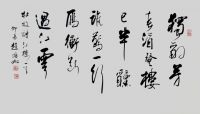 獨酌芳
春酒登樓
已半醺
誰驚一行
雁衝斷
過江雲
杜牧詩江樓一首